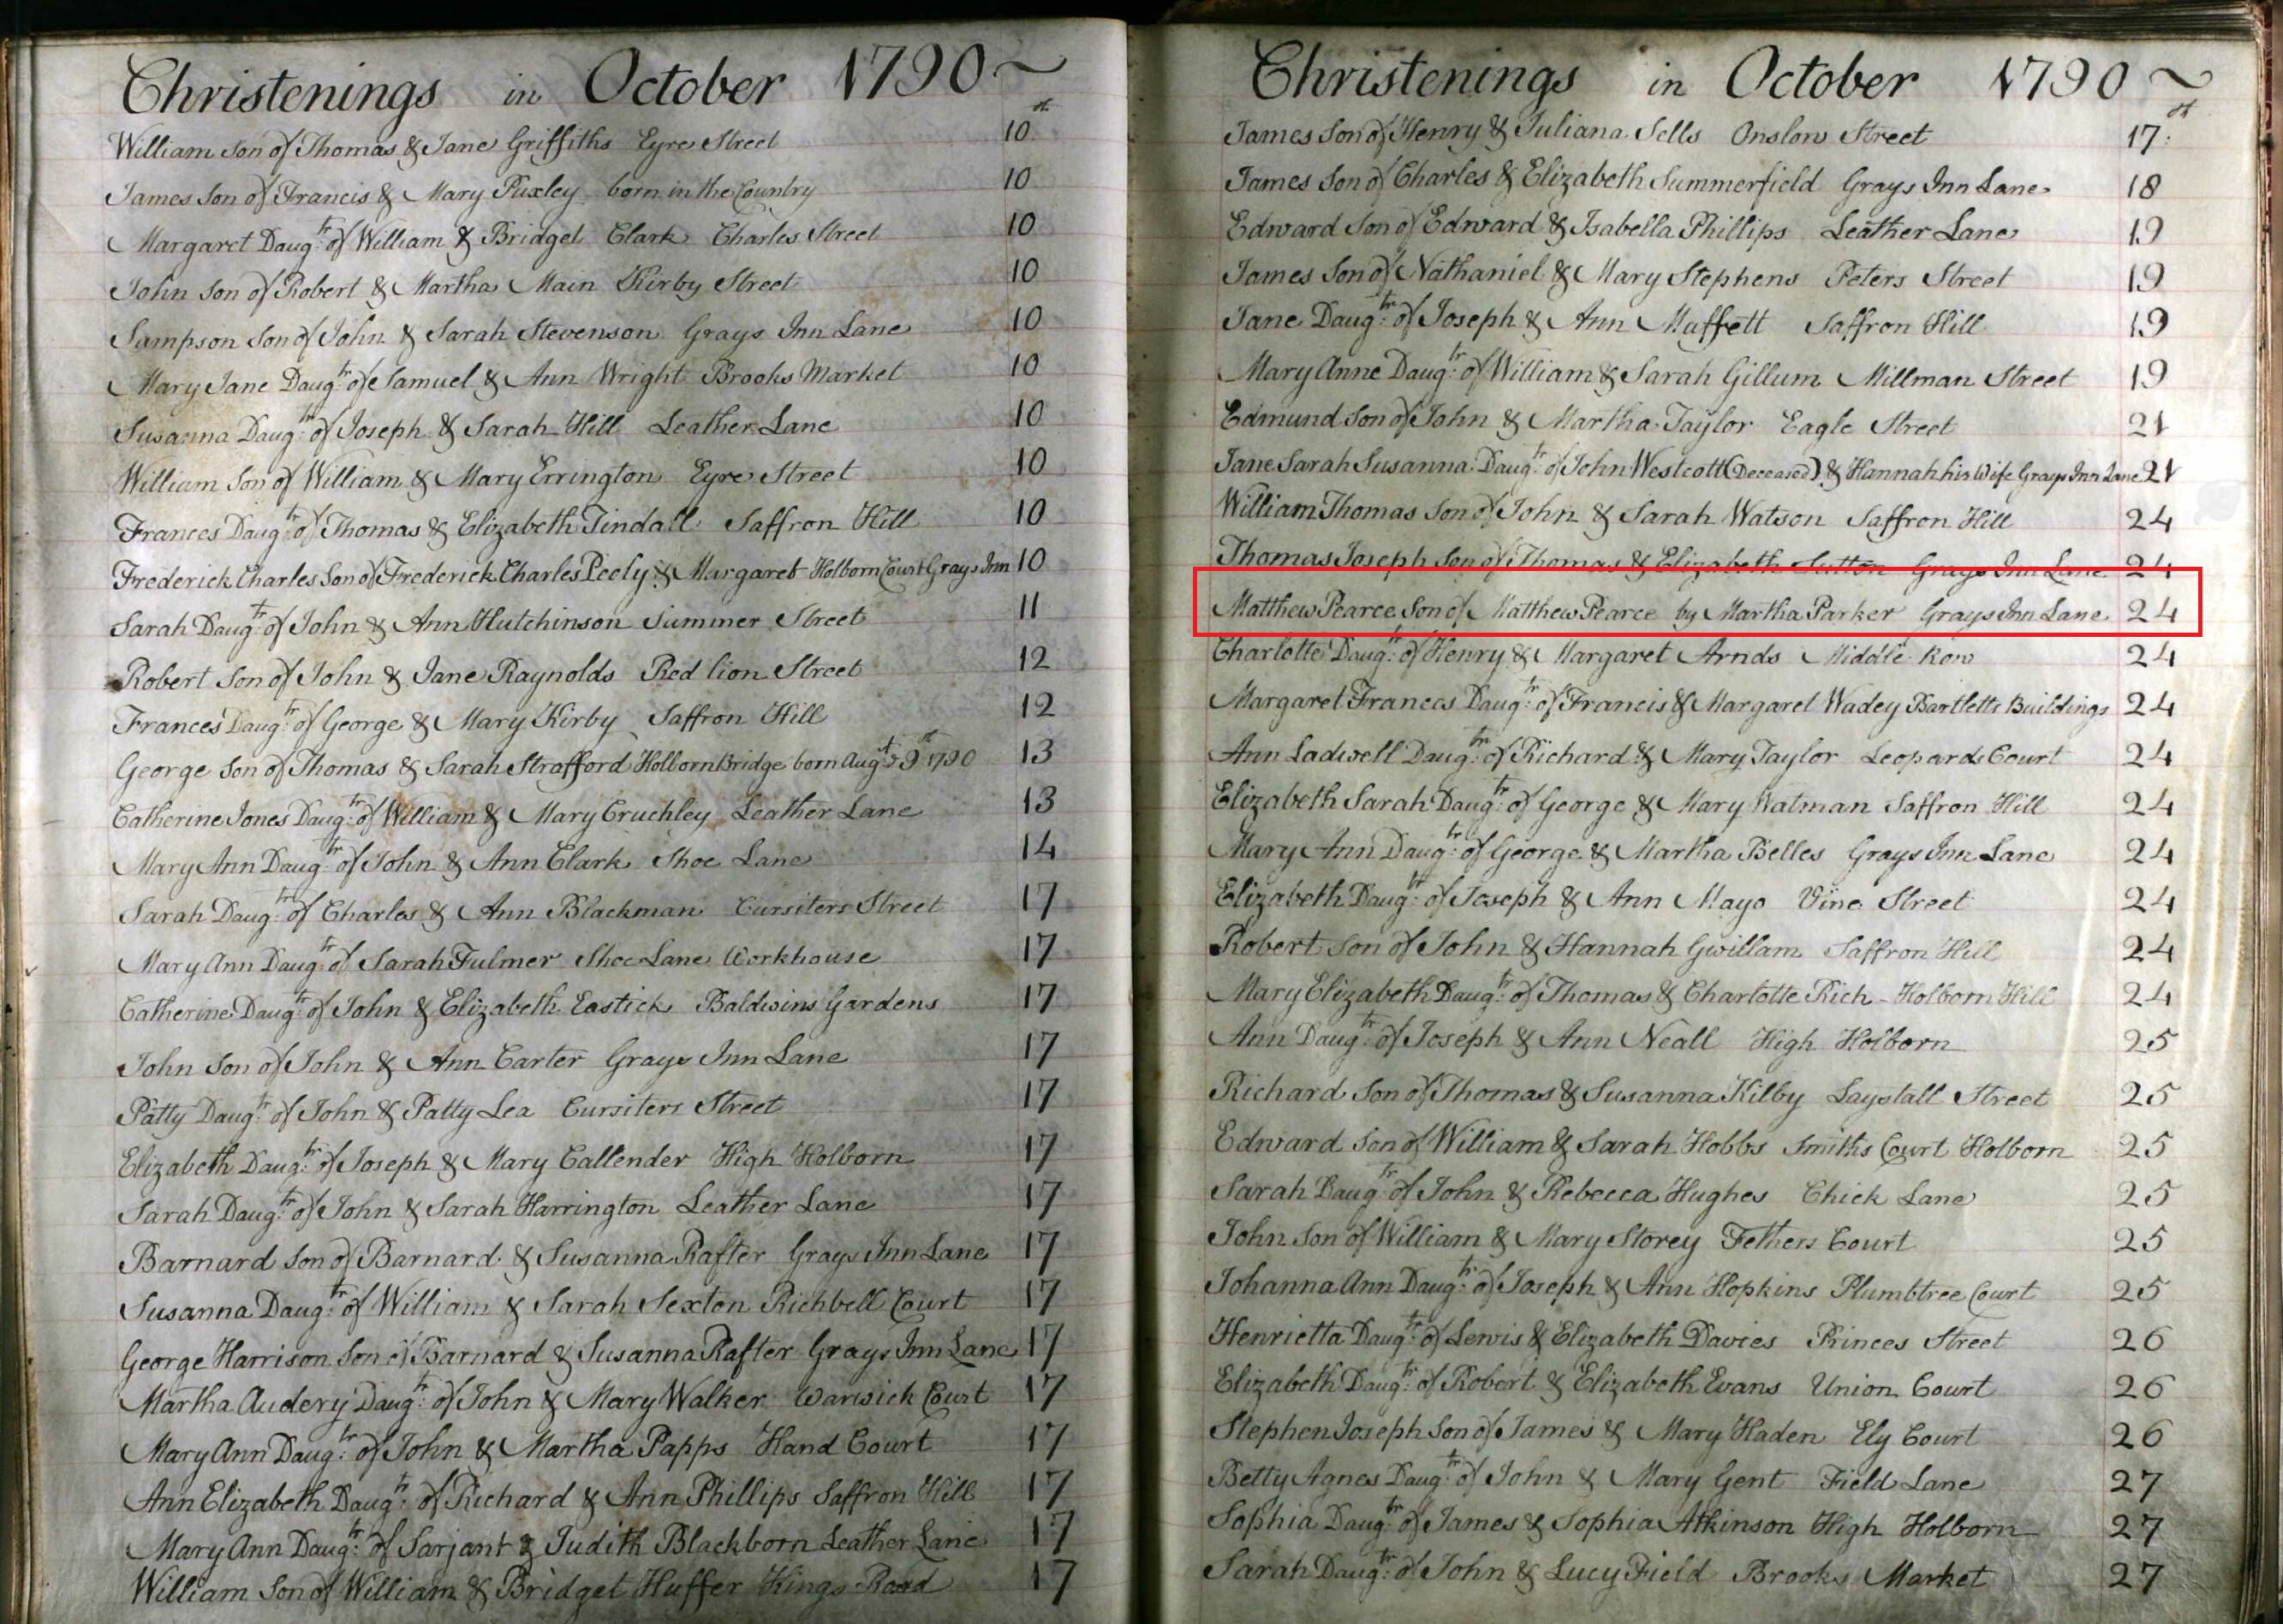 Christenings in October 1790
th
William Son of Thomas & Jane Griffiths Eyre Street 10
James Son of Francis & Mary Puxley born in the Country 10
Margaret Daugtr. of William & Bridget Clark Charles Street 10
John Son of Robert & Martha Main Kirby Street 10
Sampson Son of John & Sarah Stevenson Grays Inn Lane 10
Mary Jane Daugtr. of Samuel & Ann Wright Brooks Market 10
Susanna Daugtr. of Joseph & Sarah Hill Leather Lane 10
William Son of William & Mary Errington Eyre Street 10
Frances Daugtr. of Thomas & Elizabeth Tindall Saffron Hill 10
Frederick Charles Son of Frederick Charles Peely & Margaret Holborn Court Grays Inn 10
Sarah Daugtr. of John & Ann Hutchinson Summer Street 11
Robert Son of John & Jane Raynolds Red lion Street 12
Frances Daugtr. of George & Mary Kirby Saffron Hill 12
George Son of Thomas & Sarah Strafford Holborn Bridge born Augst 9th 1790 13
Catherine Jones Daugtr. of William & Mary Cruchley Leather Lane 13
Mary Ann Daugtr. of John & Ann Clark Shoe Lane 14
Sarah Daugtr. of Charles & Ann Blackman Cursiters Street 17
Mary Ann Daugtr. of Sarah Fulmer Shoe Lane Workhouse 17
Catherine Daugtr. of John & Elizabeth Eastick Baldwins Gardens 17
John Son of John & Ann Carter Grays Inn Lane 17
Patty Daugtr. of John & Patty Lea Cursiters Street 17
Elizabeth Daugtr. of Joseph & Mary Callender High Holborn 17
Sarah Daugtr. of John & Sarah Harrington Leather Lane 17
Barnard Son of Barnard & Susanna Rafter Grays Inn Lane 17
Susanna Daugtr. of William & Sarah Sexton Richbell Court 17
George Harrison Son of Barnard & Susanna Rafter Grays Inn Lane 17
Martha Audery Daugtr. of John & Mary Walker Warwick Court 17
Mary Ann Daugtr. of John & Martha Papps Hand Court 17
Ann Elizabeth Daugtr. of Richard & Ann Phillips Saffron Hill 17
Mary Ann Daugtr. of Sarjant & Judith Blackborn Leather Lane 17
William Son of William & Bridget Huffer Kings Road 17
Christenings in October 1790
th
James Son of Henry & Juliana Sells Onslow Street 17
James Son of Charles & Elizabeth Summerfield Grays Inn Lane 18
Edward Son of Edward & Isabella Phillips Leather Lane 19
James Son of Nathaniel & Mary Stephens Peters Street 19
Jane Daugtr. of Joseph & Ann Muffett Saffron Hill 19
Mary Anne Daugtr. of William & Sarah Gillum Millman Street 19
Edmund Son of John & Martha Taylor Eagle Street 21
Jane Sarah Susanna Daugtr. of John Westcott (Deceased) & Hannah his Wife Grays Inn Lane 21
William Thomas Son of John & Sarah Watson Saffron Hill 24
Thomas Joseph Son of Thomas & Elizabeth Sutton Grays Inn Lane 24
Matthew Pearce Son of Matthew Pearce by Martha Parker Grays Inn Lane 24
Charlotte Daugtr. of Henry & Margaret Arnds Middle Row 24
Margaret Frances Daugtr. of Francis & Margaret Wadey Bartletts Buildings 24
Ann Ladwell Daugtr. of Richard & Mary Taylor Leopards Court 24
Elizabeth Sarah Daugtr. of George & Mary Watman Saffron Hill 24
Mary Ann Daugtr. of George & Martha Belles Grays Inn Lane 24
Elizabeth Daugtr. of Joseph & Ann Mayo Vine Street 24
Robert Son of John & Hannah Gwillam Saffron Hill 24
Mary Elizabeth Daugtr. of Thomas & Charlotte Rich Holborn Hill 24
Ann Daugtr. of Joseph & Ann Neall High Holborn 25
Richard Son of Thomas & Susanna Kilby Laystall Street 25
Edward Son of William & Sarah Hobbs Smiths Court Holborn 25
Sarah Daugtr. of John & Rebecca Hughes Chick Lane 25
John Son of William & Mary Storey Fethers Court 25
Johanna Ann Daugtr. of Joseph & Ann Hopkins Plumbtree Court 25
Henrietta Daugtr. of Lewis & Elizabeth Davies Princes Street 26
Elizabeth Daugtr. of Robert & Elizabeth Evans Union Court 26
Stephen Joseph Son of James & Mary Haden Ely Court 26
Betty Agnes Daugtr. of John & Mary Gent Field Lane 27
Sophia Daugtr. of James & Sophia Atkinson High Holborn 27
Sarah Daugtr. of John & Lucy Field Brooks Market 27